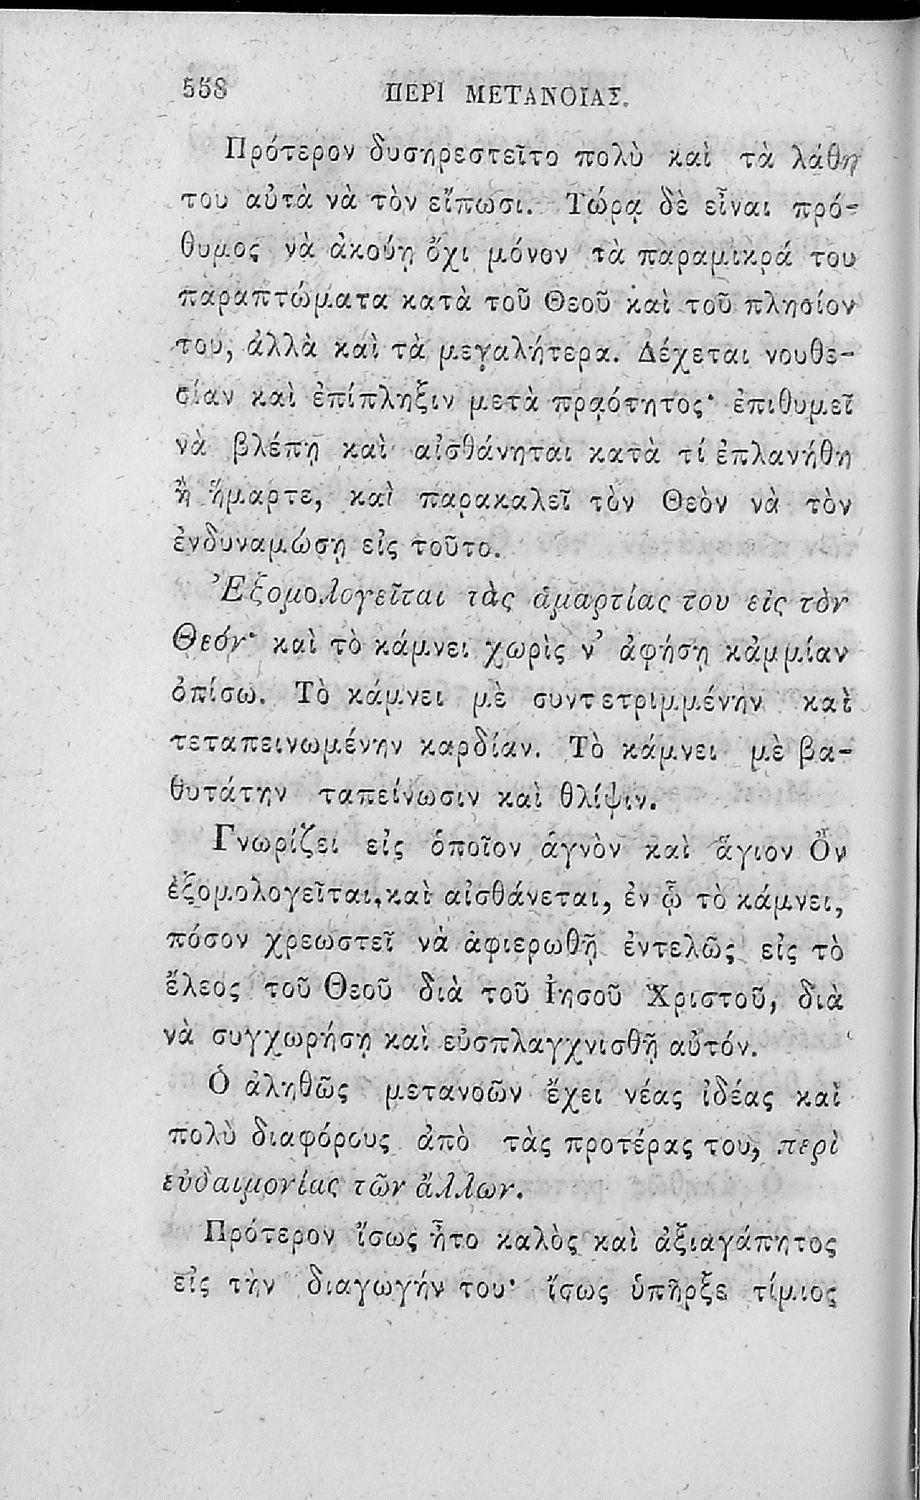 558 ΠΕΡΙ ΜΕΤΑΝΟΙΑΣ.
Πρότερον δυσηρεστεῖτο πολὺ καὶ τὰ λάθη
του αὐτὰ νὰ τὸν εἴπωσι. Τώρα δὲ εἶναι πρό-
θυμος νὰ ἀκούῃ ὄχι μόνον τὰ παραμικρά του
παραπτώματα κατὰ τοῦ Θεοῦ καὶ τοῦ πλησίον
του, ἀλλὰ καὶ τὰ μεγαλήτερα. Δέχεται νουθε-
σίαν καὶ ἐπίπληξιν μετὰ πραότητος· ἐπιθυμεῖ
νὰ βλέπῃ καὶ αἰσθάνηται κατὰ τί ἐπλανήθη
ἢ ἥμαρτε, καὶ παρακαλεῖ τὸν Θεὸν νὰ τὸν
ἐνδυναμώσῃ εἰς τοῦτο.
Ἐξομολογεῖται τὰς ἁμαρτίας του εἰς τὸν
Θεόν· καὶ τὸ κάμνει χωρὶς ν’ ἀφήσῃ κἀμμίαν
ὀπίσω. Τὸ κάμνει μὲ συντετριμμένην καὶ
τεταπεινωμένην καρδίαν. Τὸ κάμνει μὲ βα-
θυτάτην ταπείνωσιν καὶ θλίψιν.
Γνωρίζει εἰς ὁποῖον ἁγνὸν καὶ ἅγιον Ὂν
ἐξομολογεῖται, καὶ αἰσθάνεται, ἐν ᾧ τὸ κάμνει,
πόσον χρεωστεῖ νὰ ἀφιερωθῇ ἐντελῶς εἰς τὸ
ἔλεος τοῦ Θεοῦ διὰ τοῦ Ἰησοῦ Χριστοῦ, διὰ
νὰ συγχωρήσῃ καὶ εὐσπλαγχνισθῇ αὐτόν.
Ὁ ἀληθῶς μετανοῶν ἔχει νέας ἰδέας καὶ
πολὺ διαφόρους ἀπὸ τὰς προτέρας του, περὶ
εὐδαιμονίας τῶν ἄλλων.
Πρότερον ἴσως ἦτο καλὸς καὶ ἀξιαγάπητος
εἰς τὴν διαγωγήν του· ἴσως ὑπῆρξε τίμιος